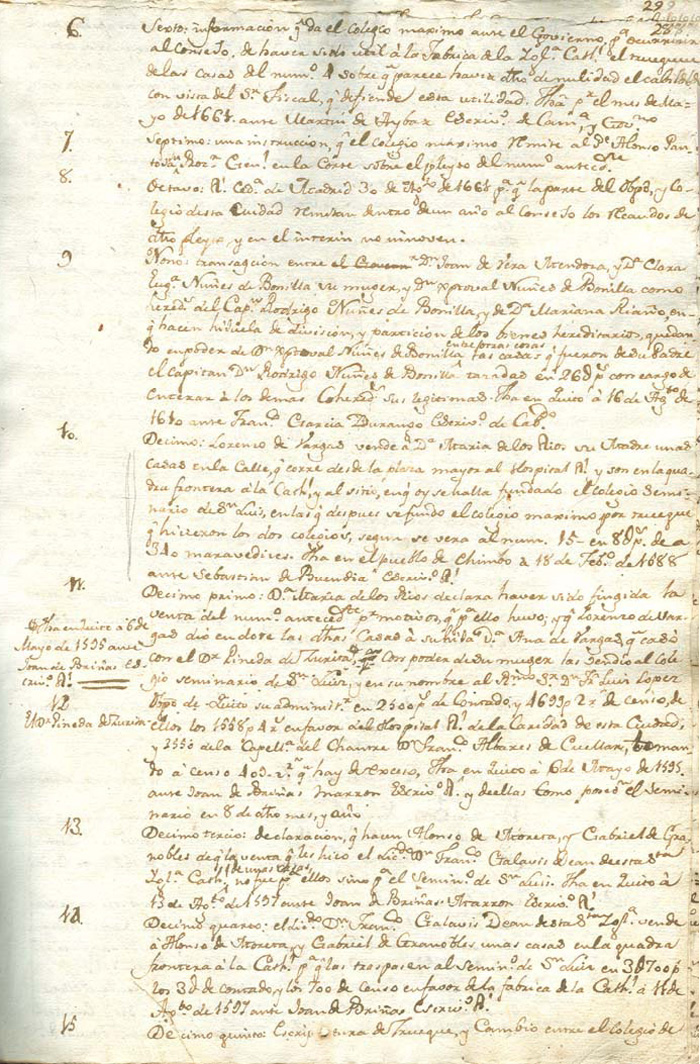 299
6. Sexto: informacion q̃ da el Colegio maximo ante el Govierno, pª ocurrir
al Consejo, de haver sido util à la Fabrica de la Yglª Cathˡ. el trueque
de las casas del numº. 4 sobre q̃ parece haver dho de nulidad el cabildo
con vista del Sʳ Fiscal, q̃ defiende esta utilidad. Fha pʳ el mes de Ma-
yo de 1667. ante Martin de Aybar Escrivº. de Camª, y Govʳⁿᵒ
7. Septimo: una instruccion, q̃ el colegio maximo remite al Pᵉ Alonso Pan-
toxa Procʳ Genˡ. en la Corte sobre el pleyto del numº antecedᵗᵉ
8. Octavo: Rˡ. Cedª de Madrid 30 de de 166 pª q̃ la parte del Obpo, y Co-
legio desta Ciudad remitan dentro de un año al Consejo los Recaudos de
dho pleyto, y en el interin no innoven.
9 Nono: transaçion entre Dⁿ Joan de Vera Mendoza, y Dª Clara
Eugª Nuñes de Bonilla su muger, y Dⁿ xptoval Nuñes de Bonilla como
heredˢ del Capⁿ Rodrigo Nuñes de Bonilla, y de Dª Mariana Riaño, en
q̃ hacen hijuela de division, y particion de los bienes hereditarios, quedan-
do en poder de Dⁿ xptoval Nuñes de Bonilla entre otras cosas las casas q̃ fueron de su Padre
el Capitan Dⁿ Rodrigo Nuñes de Bonilla tazadas en 268 pˢ con cargo de
enterar à los demas Cohereds sus legitimas. Fha en Quito à 16 de Agᵗᵒ de
1610 ante Franᶜᵒ Garcia Durango Escrivº. de Cabº.
10. Decimo: Lorenzo de Vargas vende à Dª Maria de los Rios su Madre unas
casas en la Calle, q̃ corre desde la plaza mayor al Hospital Rˡ. y son en la qua-
dra frontera à la Cathˡ, y al sitio, en q̃ oy se halla fundado el Colegio Semi-
nario de Sⁿ Luis, en las q̃ despues se fundó el colegio maximo por trueque
q̃ hicieron los dos colegios, segun se vera al num. 15 en 8 pˢ. de a
340 maravedises. Fha en el pueblo de Chimbo à 18 de Febº. de 1588
ante Sebastian de Buendia Escrivº Rˡ
11. Decimo primo: Dª Maria de los Rios declara haver sido fingida la
venta del numº antecedᵗᵉ pʳ motivos, q̃ pª ello huvo; y q̃ Lorenzo de Var-
gas dió en dote las dhas Casas à su hija Dª Ana de Vargas, q̃ casò
con el Dʳ Pineda de Zurita,
Fha en Quito à 6 de
Mayo de 1595 ante
Joan de Briñas Es-
crivº. Rˡ.
12
El Dʳ Pineda de Zurita
Con poder de su muger las vendió al Cole-
gio seminario de Sⁿ Luis, y en su nombre al Sʳ Dⁿ Fr Luis Lopez
Obpo de Quito su administʳ en 2500 pˢ de Contado, y 4699 p 2 rˢ de censo, de
ellos los 1558 p 4 rˢ en favor del Hospital Rˡ. de la Caridad de esta Ciudad,
y 2550 de la Capellª del Chantre Dⁿ Franᶜᵒ Albares de Cuellar, toman-
do à censo q̃ hay de exceso, Fha en Quito à 6 de Mayo de 1595.
ante Joan de Briñas Marron Escrivº Rˡ. y de ellas tomo posesⁿ el Semi-
nario en 8 de dho mes, y año
13. Decimo tercio: declaracion, q̃ hacen Alonso de Moreta, y Gabriel de Gra-
nobles de q̃ la venta q̃ les hizo el Licᵈᵒ Dⁿ Franᶜᵒ Galavis Dean de esta Sᵗᵃ
Yglª Cathˡ. de unas casas, no fue pª ellos sino pª el Seminº. de Sⁿ Luis. Fha en Quito à
13 de Agᵗᵒ de 1597 ante Joan de Briñas Marron Escrivº Rˡ.
14. Decimo quarto: el Licᵈᵒ Dⁿ Franᶜᵒ Galavis Dean de esta Sᵗᵃ Yglª. vende
à Alonso de Moreta, y Gabriel de Granobles unas casas en la quadra
frontera à la Cathˡ. pª q̃ las traspasen al Seminº. de Sⁿ Luis en 3 700 p
los 3 de contado, y los 700 de censo en favor de la fabrica de la Cathˡ. à 11 de
Agᵗᵒ de 1597 ante Joan de Briñas Escrivº Rˡ.
15 Decimo quinto: Escriptura de Trueque, y Cambio entre el Colegio de